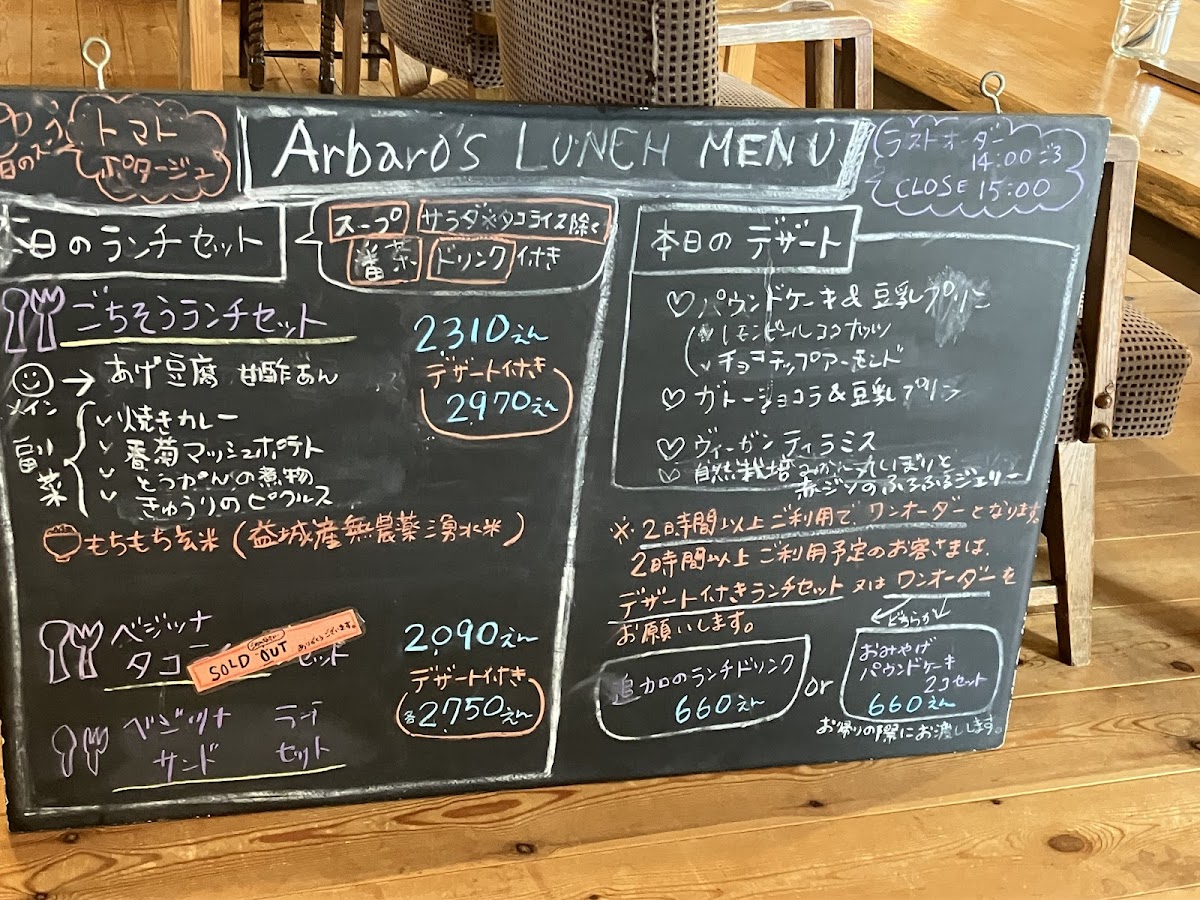 トマト
ポタージュ
Arbaro's LUNCH MENU
ラストオーダー
14:00ごろ
CLOSE 15:00
本日のランチセット
スープ サラダ※タコライス除く
番茶 ドリンク 付き
ごちそうランチセット
2310えん
デザート付き
2970えん
メイン → あげ豆腐 甘酢あん
副菜
✓焼きカレー
✓春菊マッシュポテト
✓とうがんの煮物
✓きゅうりのピクルス
もちもち玄米(益城産無農薬湧水米)
ベジッナ
タコ
SOLD OUT
ありがとうございます。
セット
2090えん
デザート付き
各2750えん
ベジッナ
サンド
セット
本日の デザート
♡ パウンドケーキ&豆乳プリン
レモンピールココナッツ
✓チョコチップアーモンド
♡ ガトーショコラ&豆乳プリン
♡ ヴィーガンティラミス
♡ 自然栽培 しぼりと
赤ジソのふるふるジェリー
※2時間以上ご利用で、ワンオーダーとなります。
2時間以上ご利用予定のお客さまは、
デザート付きランチセット 又は ワンオーダーを
お願いします。
どちらか
追加のランチドリンク
660えん
or
おみやげ
パウンドケーキ
2コセット
660えん
お帰りの際にお渡しします。